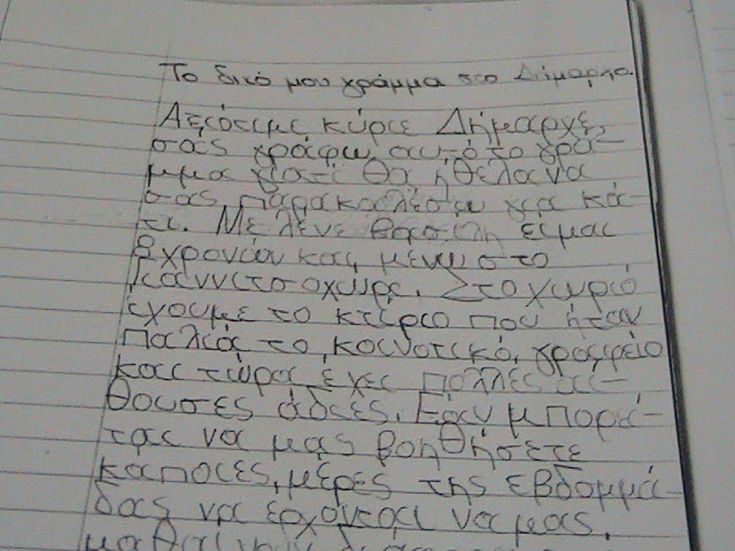 Το δικό μου γράμμα στο Δήμαρχο.
Αξιότιμε κύριε Δήμαρχε,
σας γράφω αυτό το γρά-
μμα γιατί θα ήθελα να
σας παρακαλέσω για κά-
τι. Με λένε Βασίλη είμαι
8 χρονών και μένω στο
Γιαννιτσοχώρι. Στο χωριό
έχουμε το κτίριο που ήταν
παλιά το κοινοτικό γραφείο
και τώρα έχει πολλές αί-
θουσες άδιες. Εάν μπορεί-
ται να μας βοηθήσετε
κάποιες μέρες της εβδομμά-
δας να έρχονται να μας